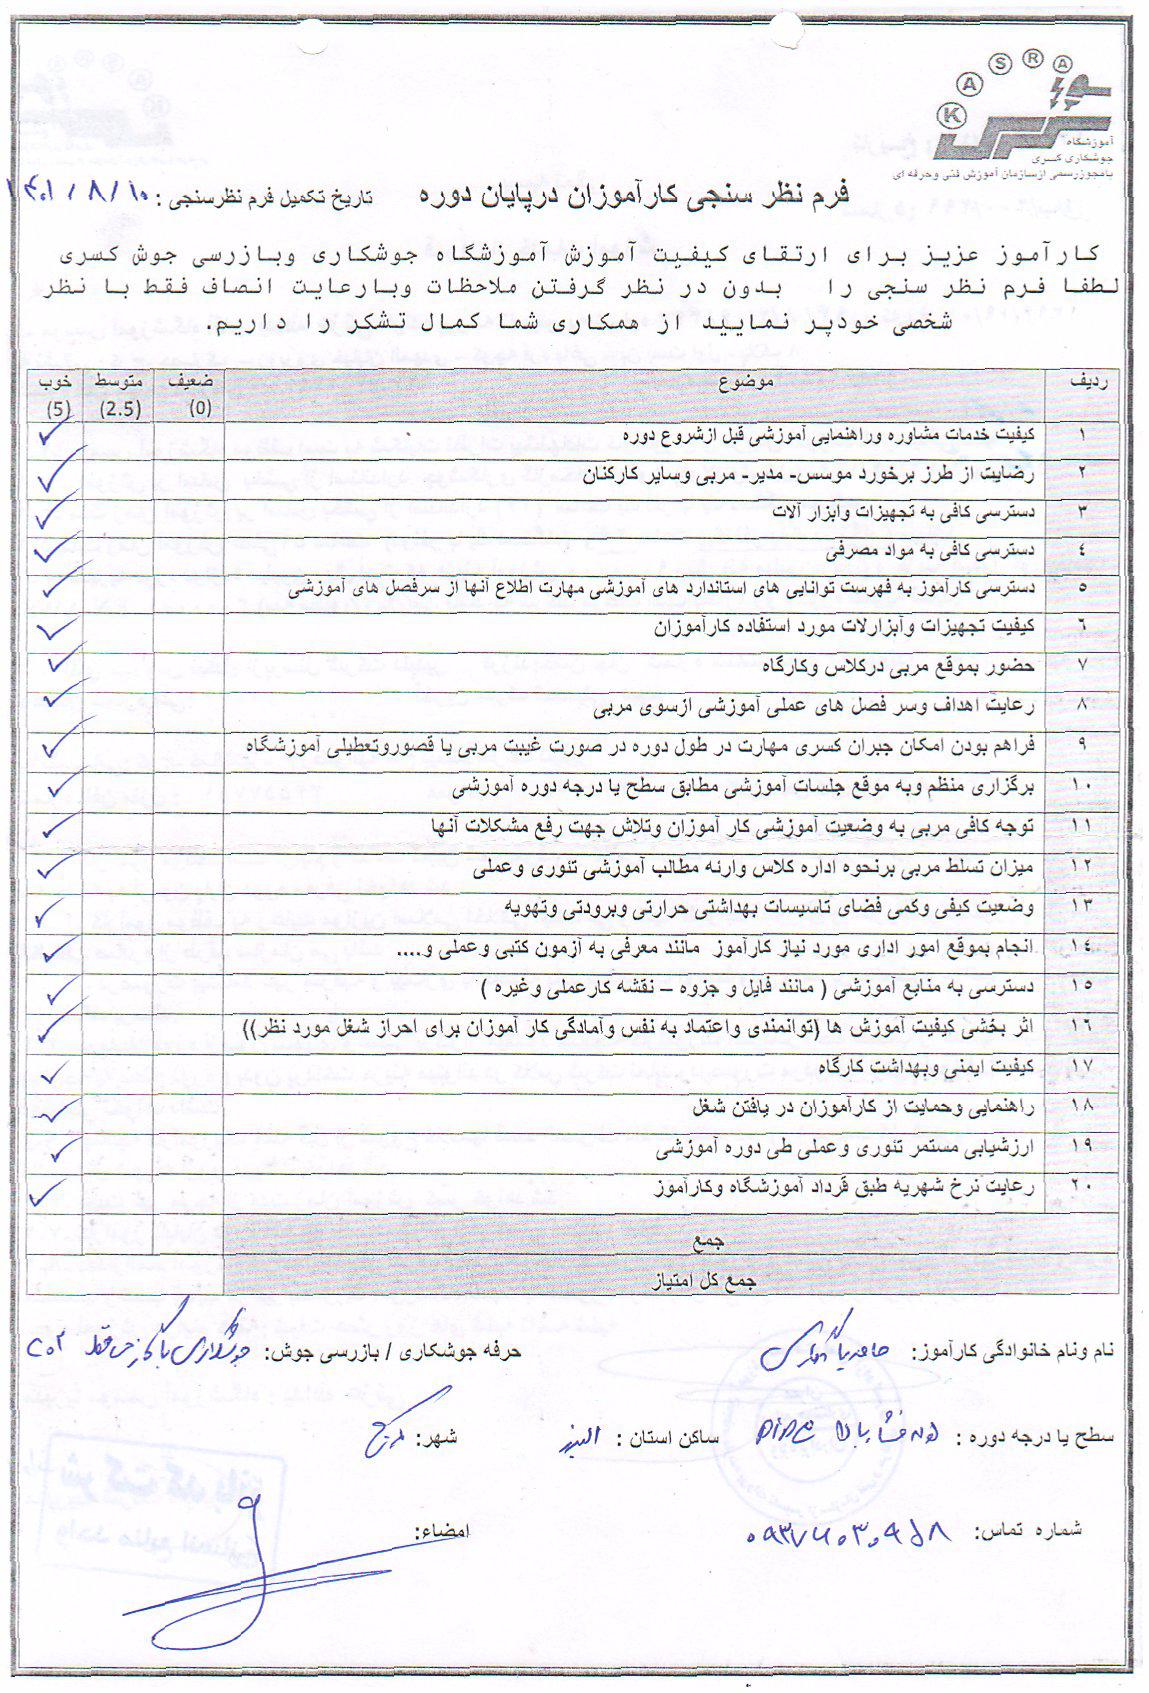 K A S R A
آموزشگاه
جوشکاری کسری
بامجوزرسمی ازسازمان آموزش فنی وحرفه ای
فرم نظر سنجی کارآموزان درپایان دوره تاریخ تکمیل فرم نظرسنجی : ۱۴۰۱/۸/۱۰
کارآموز عزیز برای ارتقای کیفیت آموزش آموزشگاه جوشکاری وبازرسی جوش کسری
لطفا فرم نظر سنجی را بدون در نظر گرفتن ملاحظات وبارعایت انصاف فقط با نظر
شخصی خودپر نمایید از همکاری شما کمال تشکر را داریم.
ردیف موضوع ضعیف (0) متوسط (2.5) خوب (5)
۱ کیفیت خدمات مشاوره وراهنمایی آموزشی قبل ازشروع دوره ✓
۲ رضایت از طرز برخورد موسس- مدیر- مربی وسایر کارکنان ✓
۳ دسترسی کافی به تجهیزات وابزار آلات ✓
۴ دسترسی کافی به مواد مصرفی ✓
۵ دسترسی کارآموز به فهرست توانایی های استاندارد های آموزشی مهارت اطلاع آنها از سرفصل های آموزشی ✓
۶ کیفیت تجهیزات وآبزارلات مورد استفاده کارآموزان ✓
۷ حضور بموقع مربی درکلاس وکارگاه ✓
۸ رعایت اهداف وسر فصل های عملی آموزشی ازسوی مربی ✓
۹ فراهم بودن امکان جبران کسری مهارت در طول دوره در صورت غیبت مربی یا قصوروتعطیلی آموزشگاه ✓
۱۰ برگزاری منظم وبه موقع جلسات آموزشی مطابق سطح یا درجه دوره آموزشی ✓
۱۱ توجه کافی مربی به وضعیت آموزشی کار آموزان وتلاش جهت رفع مشکلات آنها ✓
۱۲ میزان تسلط مربی برنحوه اداره کلاس وارئه مطالب آموزشی تئوری وعملی ✓
۱۳ وضعیت کیفی وکمی فضای تاسیسات بهداشتی حرارتی وبرودتی وتهویه ✓
۱۴ انجام بموقع امور اداری مورد نیاز کارآموز مانند معرفی به آزمون کتبی وعملی و.... ✓
۱۵ دسترسی به منابع آموزشی ( مانند فایل و جزوه – نقشه کارعملی وغیره ) ✓
۱۶ اثر بخشی کیفیت آموزش ها (توانمندی واعتماد به نفس وآمادگی کار آموزان برای احراز شغل مورد نظر)) ✓
۱۷ کیفیت ایمنی وبهداشت کارگاه ✓
۱۸ راهنمایی وحمایت از کارآموزان در یافتن شغل ✓
۱۹ ارزشیابی مستمر تئوری وعملی طی دوره آموزشی ✓
۲۰ رعایت نرخ شهریه طبق قرداد آموزشگاه وکارآموز ✓
جمع
جمع کل امتیاز
نام ونام خانوادگی کارآموز: حرفه جوشکاری / بازرسی جوش: جوشکاری با گاز محافظ CO2
سطح یا درجه دوره : ساکن استان : البرز شهر: کرج
شماره تماس: امضاء: